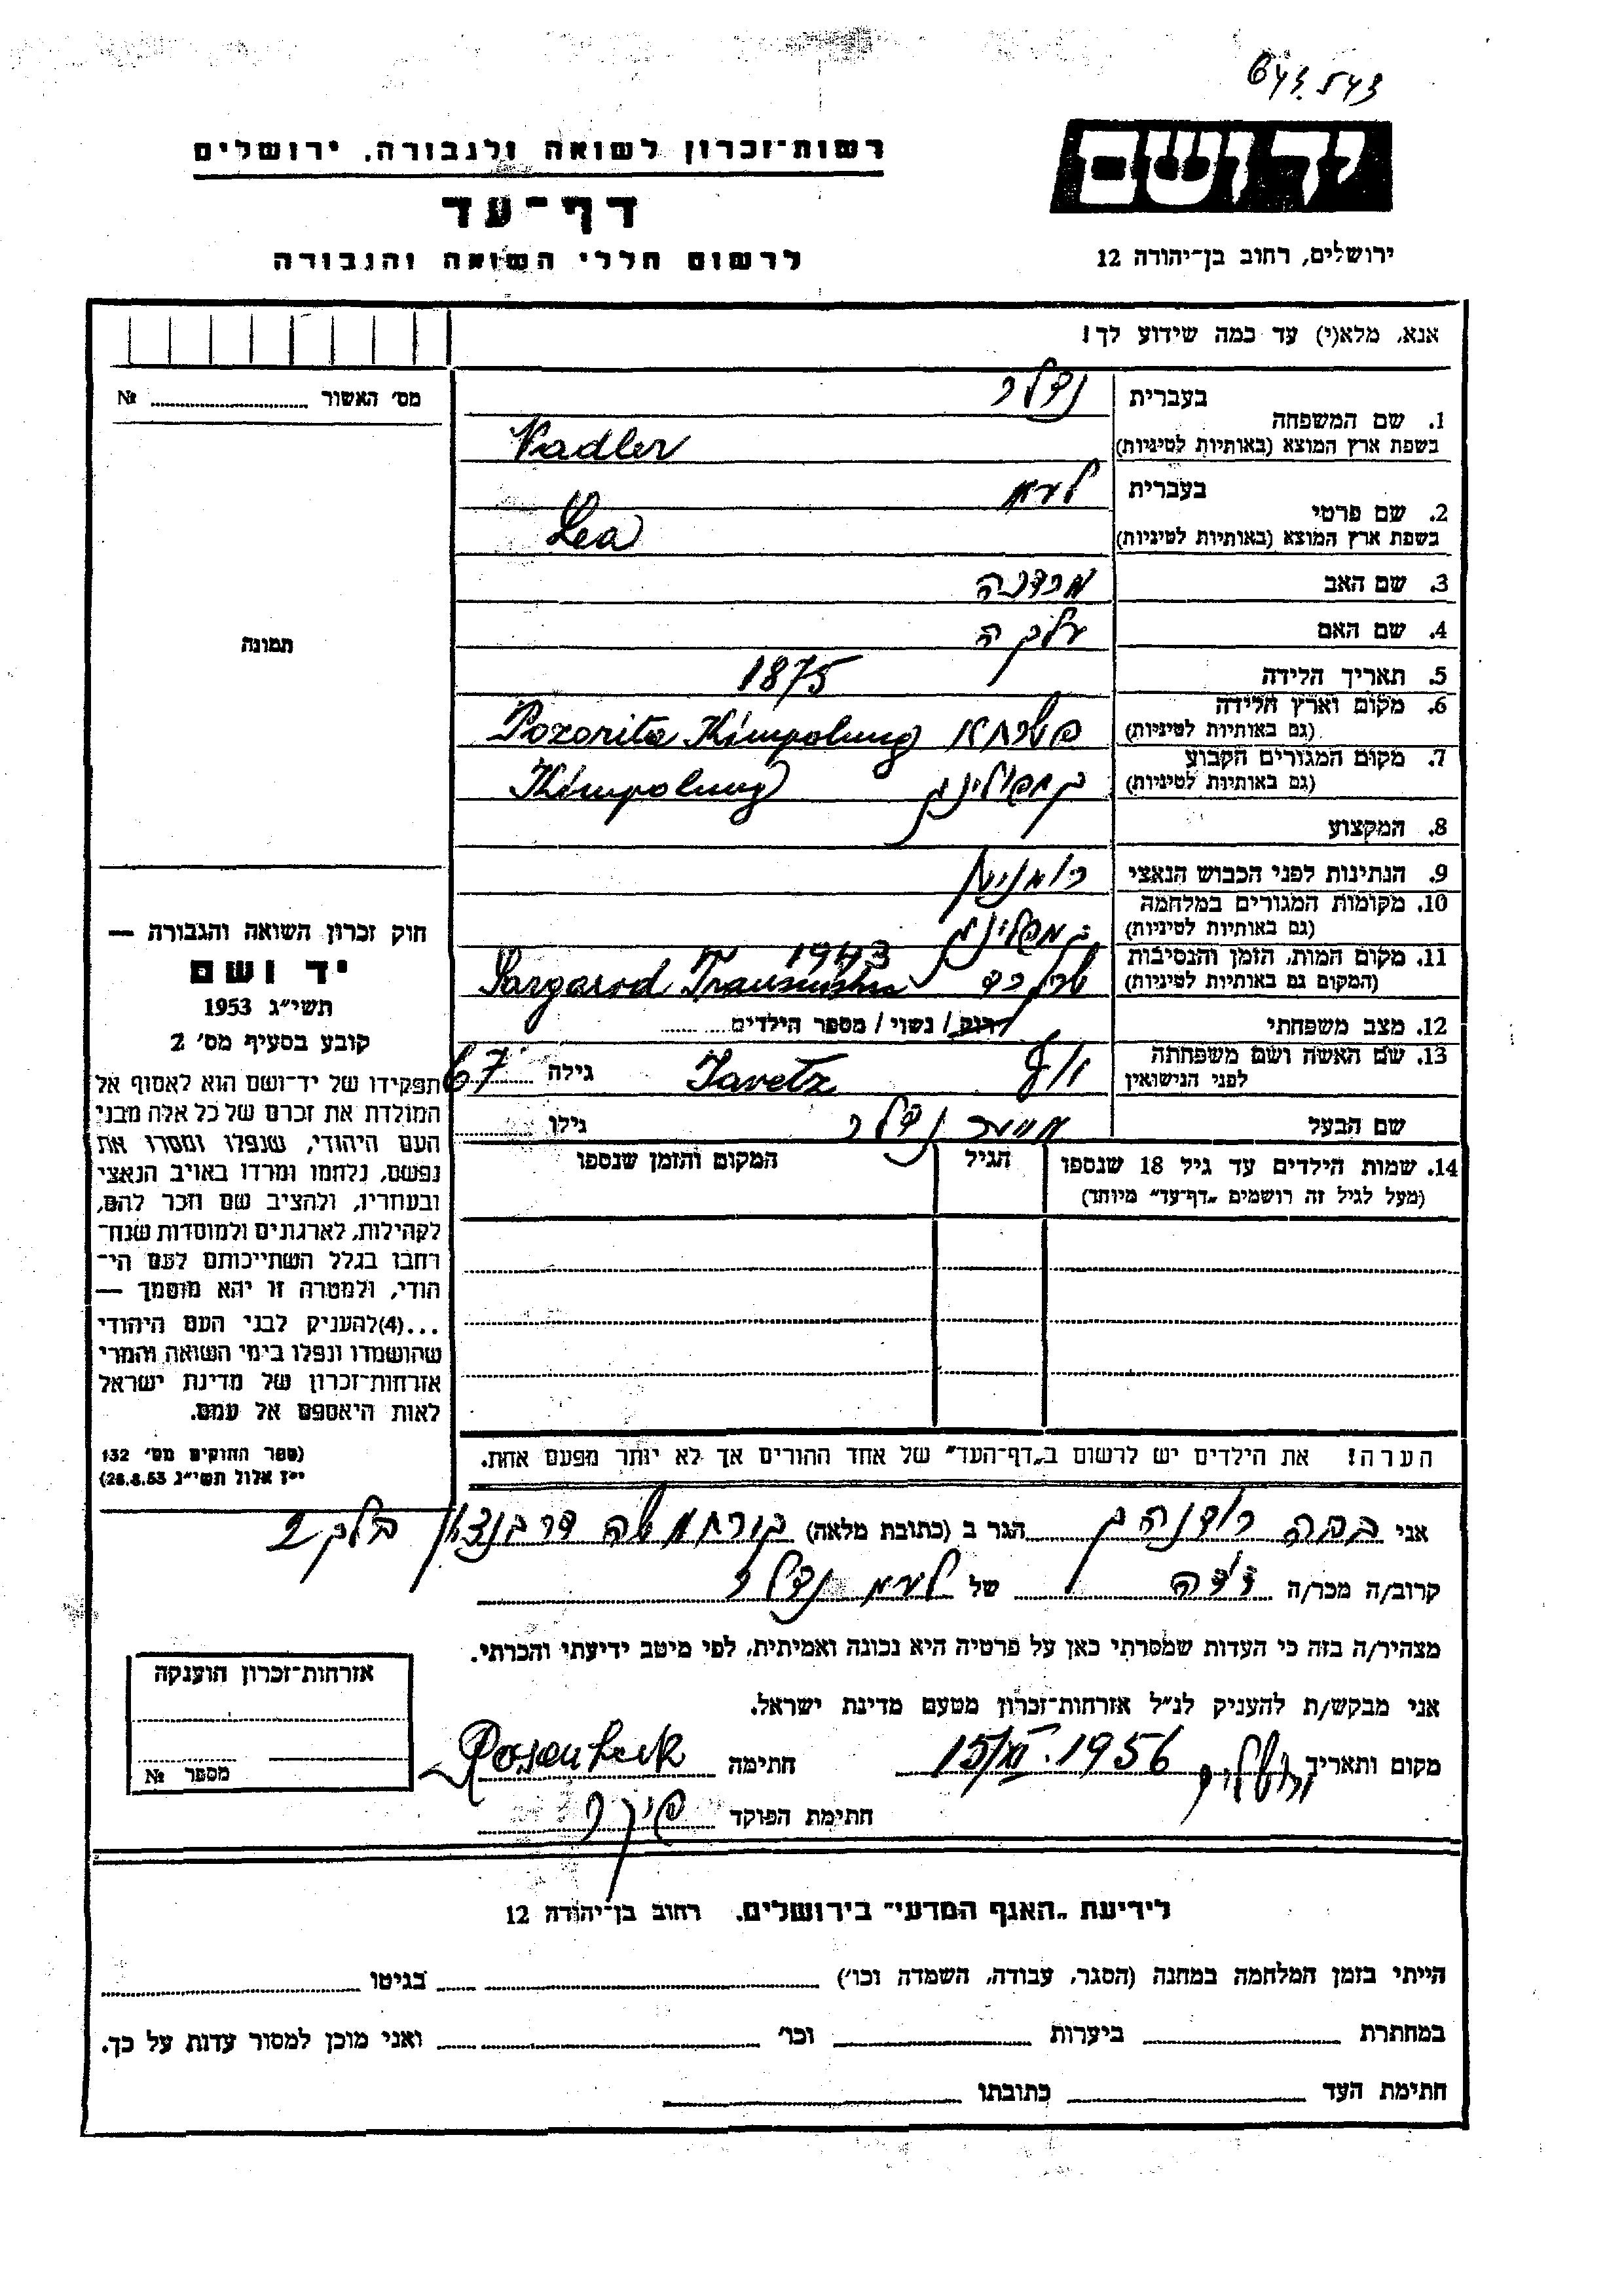 643.543
רשות־זכרון לשואה ולגבורה, ירושלים
יד ושם
דף־עד
לרשום חללי השואה והגבורה
ירושלים, רחוב בן־יהודה 12
אנא, מלא(י) עד כמה שידוע לך!
מס׳ האשור № 
תמונה
בעברית נדלר
1. שם המשפחה
בשפת ארץ המוצא (באותיות לטיניות) Nadler
בעברית לאה
2. שם פרטי
בשפת ארץ המוצא (באותיות לטיניות) Lea
3. שם האב
4. שם האם
5. תאריך הלידה 1875
6. מקום וארץ הלידה
(גם באותיות לטיניות) Pozorita Kimpolung
7. מקום המגורים הקבוע
(גם באותיות לטיניות) קמפולינג Kimpolung
8. המקצוע
9. הנתינות לפני הכבוש הנאצי
10. מקומות המגורים במלחמה
(גם באותיות לטיניות) קמפולינג
11. מקום המות, הזמן והנסיבות 1943
(המקום גם באותיות לטיניות) Sargarod
12. מצב משפחתי רווק / נשוי / מספר הילדים
13. שם האשה ושם משפחתה
לפני הנישואין Javetz גילה 67
שם הבעל נדלר גילו
14. שמות הילדים עד גיל 18 שנספו הגיל המקום והזמן שנספו
(מעל לגיל זה רושמים „דף־עד״ מיוחד)
הערה! את הילדים יש לרשום ב„דף־העד״ של אחד ההורים אך לא יותר מפעם אחת.
חוק זכרון השואה והגבורה —
יד ושם
תשי״ג 1953
קובע בסעיף מס׳ 2
תפקידו של יד־ושם הוא לאסוף אל
המולדת את זכרם של כל אלה מבני
העם היהודי, שנפלו ומסרו את
נפשם, נלחמו ומרדו באויב הנאצי
ובעוזריו, ולהציב שם וזכר להם,
לקהילות, לארגונים ולמוסדות שנח־
רבו בגלל השתייכותם לעם הי־
הודי, ולמטרה זו יהא מוסמך —
...(4)להעניק לבני העם היהודי
שהושמדו ונפלו בימי השואה והמרי
אזרחות־זכרון של מדינת ישראל
לאות היאספם אל עמם.
(ספר החוקים מס׳ 132
י״ז אלול תשי״ג 28.8.53)
אני הגר ב (כתובת מלאה)
קרוב/ה מכר/ה של לאה נדלר
מצהיר/ה בזה כי העדות שמסרתי כאן על פרטיה היא נכונה ואמיתית, לפי מיטב ידיעתי והכרתי.
אני מבקש/ת להעניק לנ״ל אזרחות־זכרון מטעם מדינת ישראל.
מקום ותאריך ירושלים 15/XI.1956 חתימה Rosenheck
חתימת הפוקד
אזרחות־זכרון הוענקה
מספר №
לידיעת „האגף המדעי״ בירושלים. רחוב בן־יהודה 12
הייתי בזמן המלחמה במחנה (הסגר, עבודה, השמדה וכו׳) בגיטו
במחתרת ביערות וכו׳ ואני מוכן למסור עדות על כך.
חתימת העד כתובתו